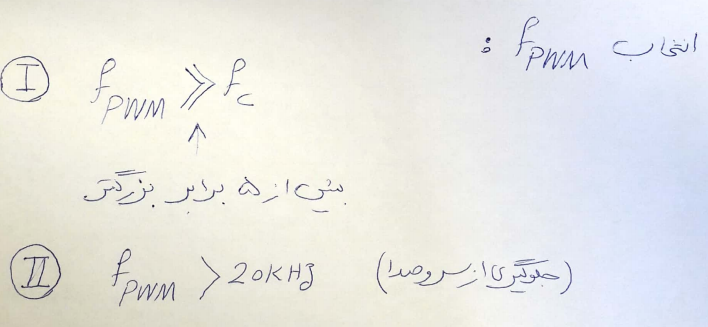 انتخاب f_PWM :
I f_PWM ≫ f_c
↑
بیش از ۵ برابر بزرگتر
II f_PWM > 20KHz (جلوگیری از سر و صدا)